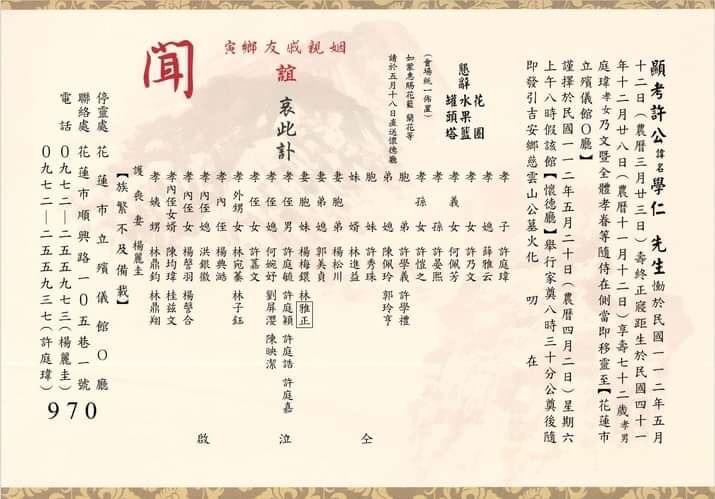 顯考許公諱名學仁 先生慟於民國一一二年五月
十二日（農曆三月廿三日）壽終正寢距生於民國四十一
年十二月廿八日（農曆十一月十二日）享壽七十二歲孝男
庭瑋孝女乃文暨全體孝眷等隨侍在側當即移靈至【花蓮市
立殯儀館０廳】
謹擇於民國一一二年五月二十日（農曆四月二日）星期六
上午八時假該館【懷德廳】舉行家奠八時三十分公奠後隨
即發引吉安鄉慈雲山公墓火化 叨 在
姻親戚友鄉寅
誼
哀此訃
聞
懇辭
花圈
水果籃
罐頭塔
（會場統一佈置）
如蒙惠賜花籃 蘭花等
請於五月十八日直送懷德廳
孝子 許庭瑋
孝媳 薛雅云
孝女 許乃文
孝義女 何佩芳
孝孫 許晏熙
孝孫女 許愷之
胞弟 許學義 許學禮
弟媳 陳佩玲 郭玲亨
胞妹 許秀珠
妹婿 林進益
妻胞弟 楊松川
妻弟媳 郭美貞
妻胞妹 楊梅鐶 林雅正
孝侄男 許庭毓 許庭穎 許庭誥 許庭嘉
孝侄媳 何婉妤 劉屏瀠 陳映潔
孝侄女 許嘉文
孝外甥女 林宛蓁 林子鈺
孝內侄 楊典澔
孝內侄媳 洪銀徽
孝內侄女 楊謦羽 楊謦合
孝內侄女婿 陳均瑋 桂茲文
孝姨甥 林鼎鈞 林鼎翔
護喪妻 楊麗圭
仝 泣 啟
【族繁不及備載】
停靈處 花蓮市立殯儀館０廳
聯絡處 花蓮市順興路一０五巷一號
電話 ０九七二—二五五九七三（楊麗圭）
０九七二—二五五九三七（許庭瑋）
970